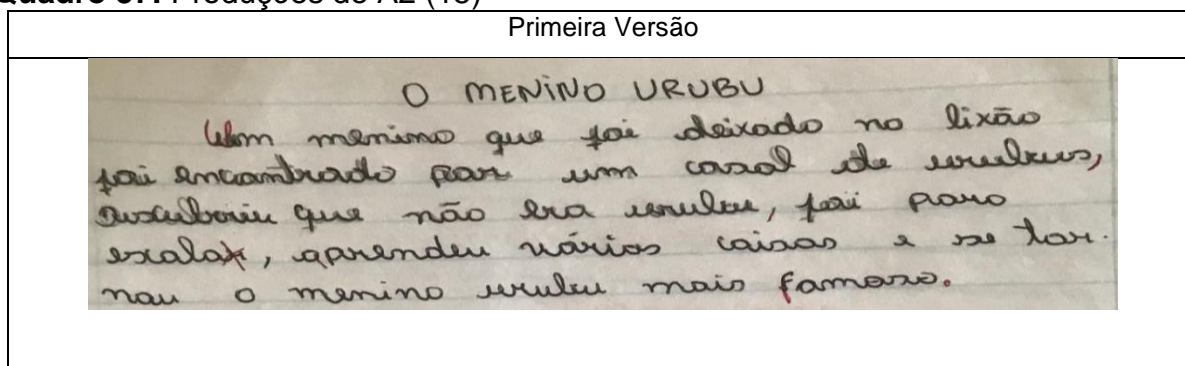 Produções do A2 (13)
Primeira Versão
O MENINO URUBU
Um menino que foi deixado no lixão
foi encontrado por um casal de urubus,
que não era urubu, foi para
escola, aprendeu várias coisas e se tor-
nou o menino urubu mais famoso.